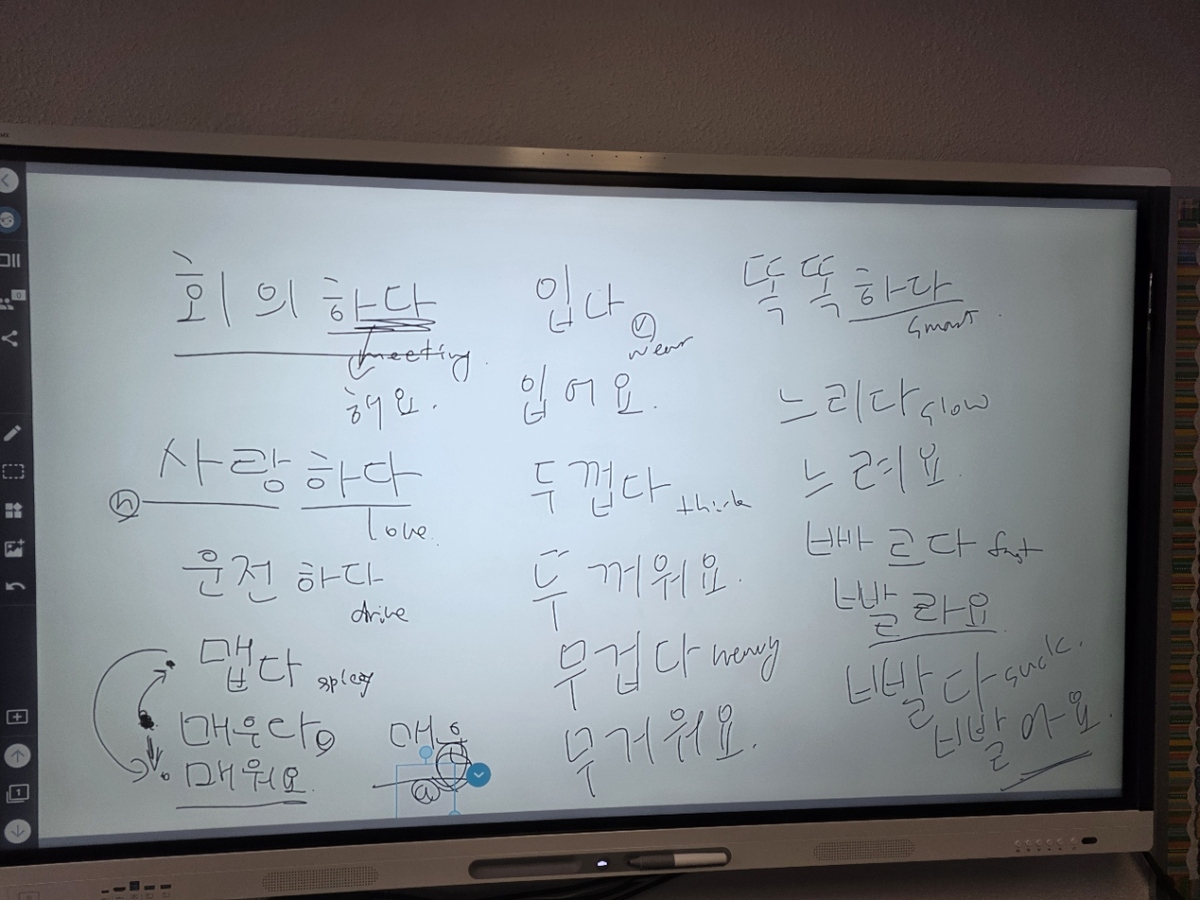 회의하다
meeting.
해요.
사랑하다
n
love.
운전하다
drive
맵다 spicy
매우다
매워요
매우
a
입다
v
wear
입어요.
두껍다 think
두꺼워요.
무겁다 heavy
무거워요.
똑똑하다
smart.
느리다 slow
느려요.
빠르다 fast
빨라요
빨다 suck.
빨아요.